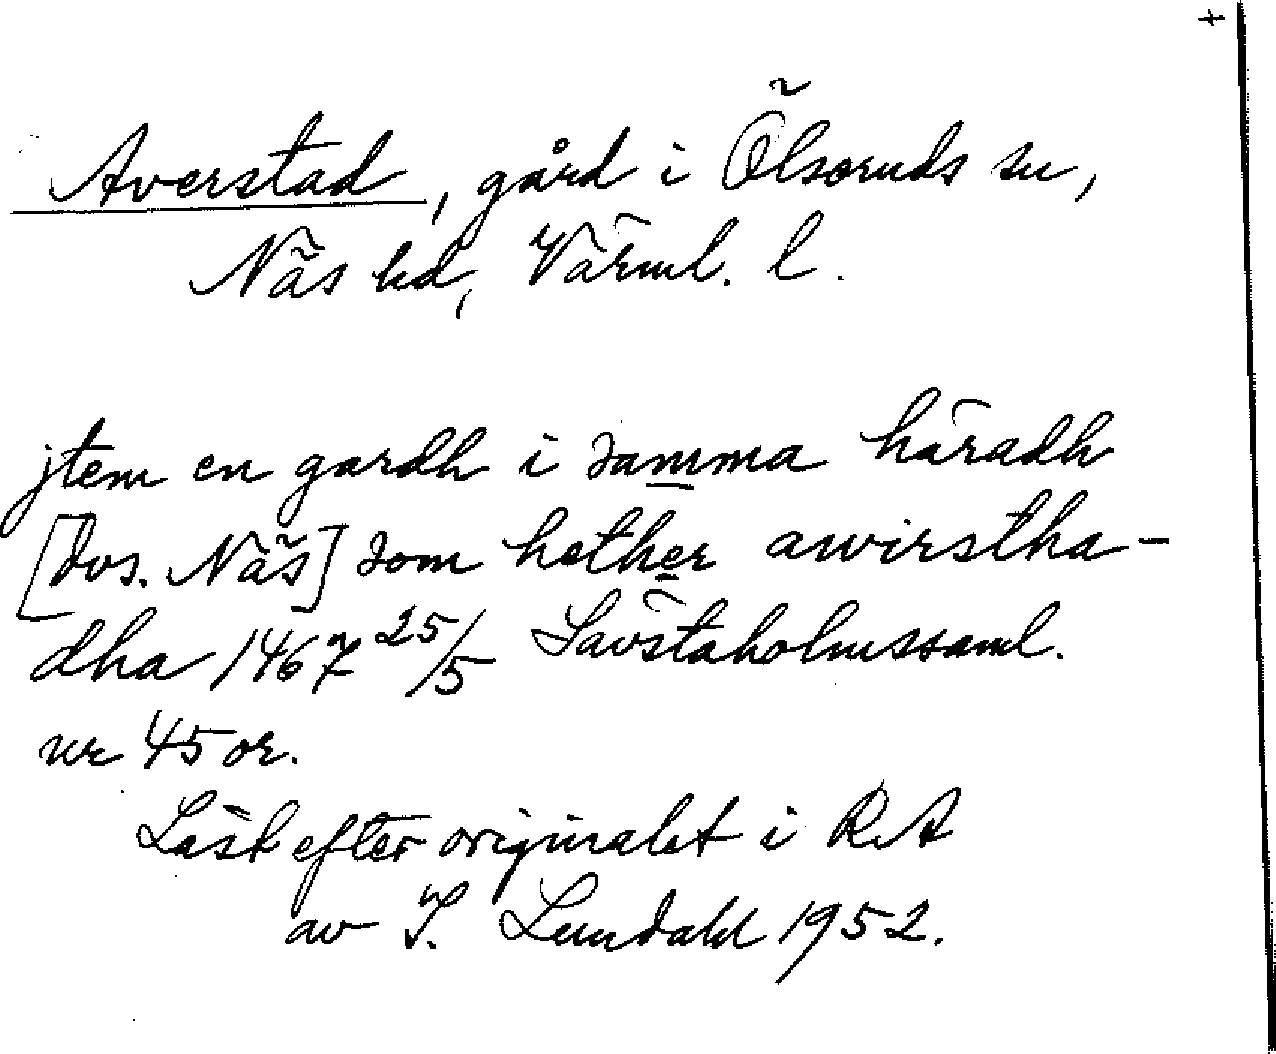 +
Averstad, gård i Ölseruds sn,
Näs hd, Värml. l.
jtem en gardh i samma häradh
[dvs. Näs] som hether awirstha-
dha 1467 25/5 Sävstaholmssaml.
nr 45 or.
Läst efter originalet i RA
av I. Lundahl 1952.